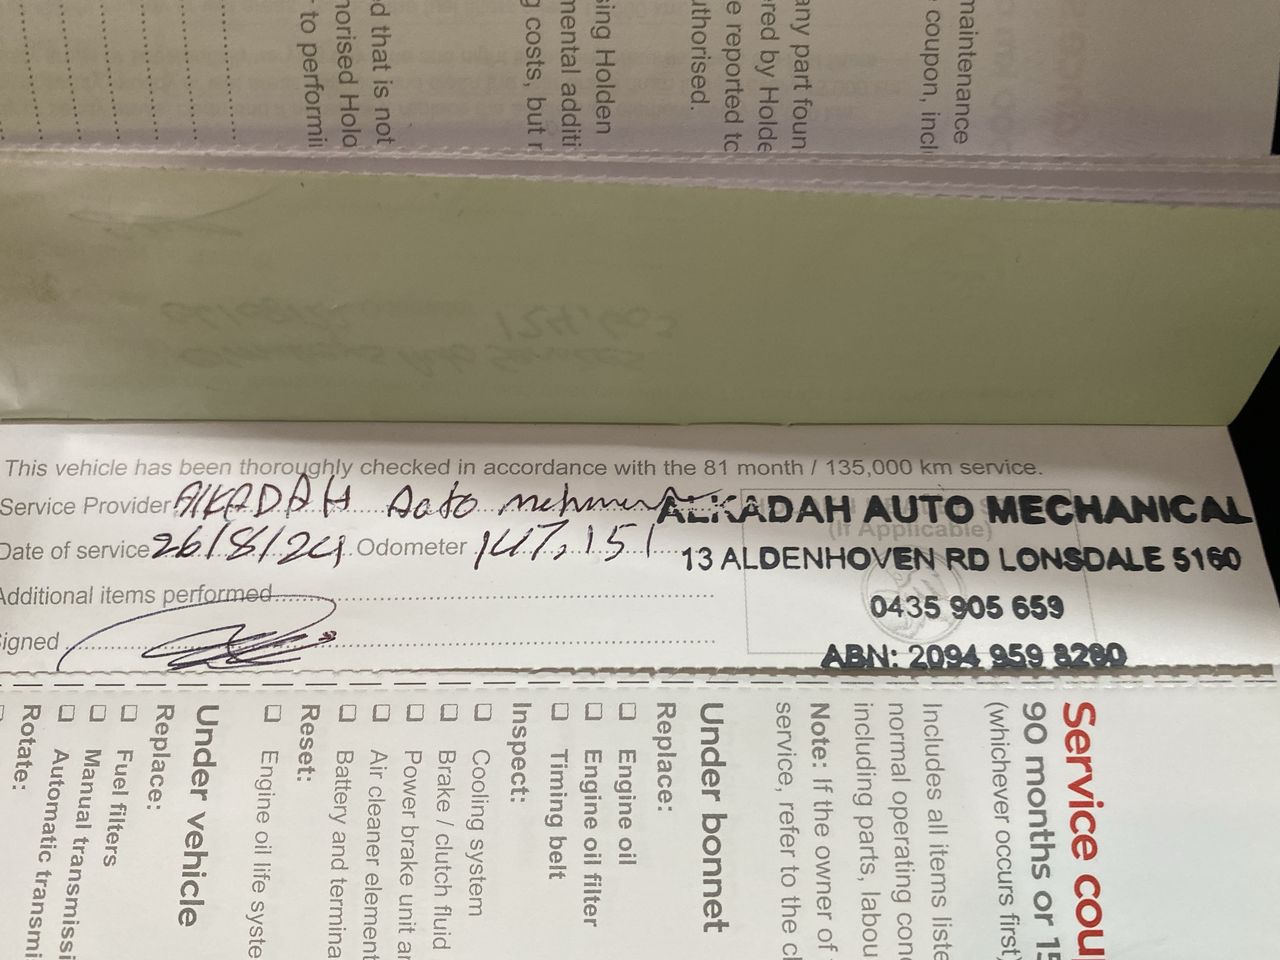 maintenance
coupon, incl
any part foun
ered by Holde
e reported to
uthorised.
sing Holden
mental additi
g costs, but r
ed that is not
norised Hold
to performi
This vehicle has been thoroughly checked in accordance with the 81 month / 135,000 km service.
Service Provider ALKADAH Auto
Date of service 26/8/24 Odometer 147,151
Additional items performed
Signed
(If Applicable)
ALKADAH AUTO MECHANICAL
13 ALDENHOVEN RD LONSDALE 5160
0435 905 659
ABN: 2094 959 8280
Service cou
90 months or 15
(whichever occurs first)
Includes all items liste
normal operating con
including parts, labou
Note: If the owner of
service, refer to the cl
Under bonnet
Replace:
Engine oil
Engine oil filter
Timing belt
Inspect:
Cooling system
Brake / clutch fluid
Power brake unit ar
Air cleaner element
Battery and termina
Reset:
Engine oil life syste
Under vehicle
Replace:
Fuel filters
Manual transmissi
Automatic transmi
Rotate: